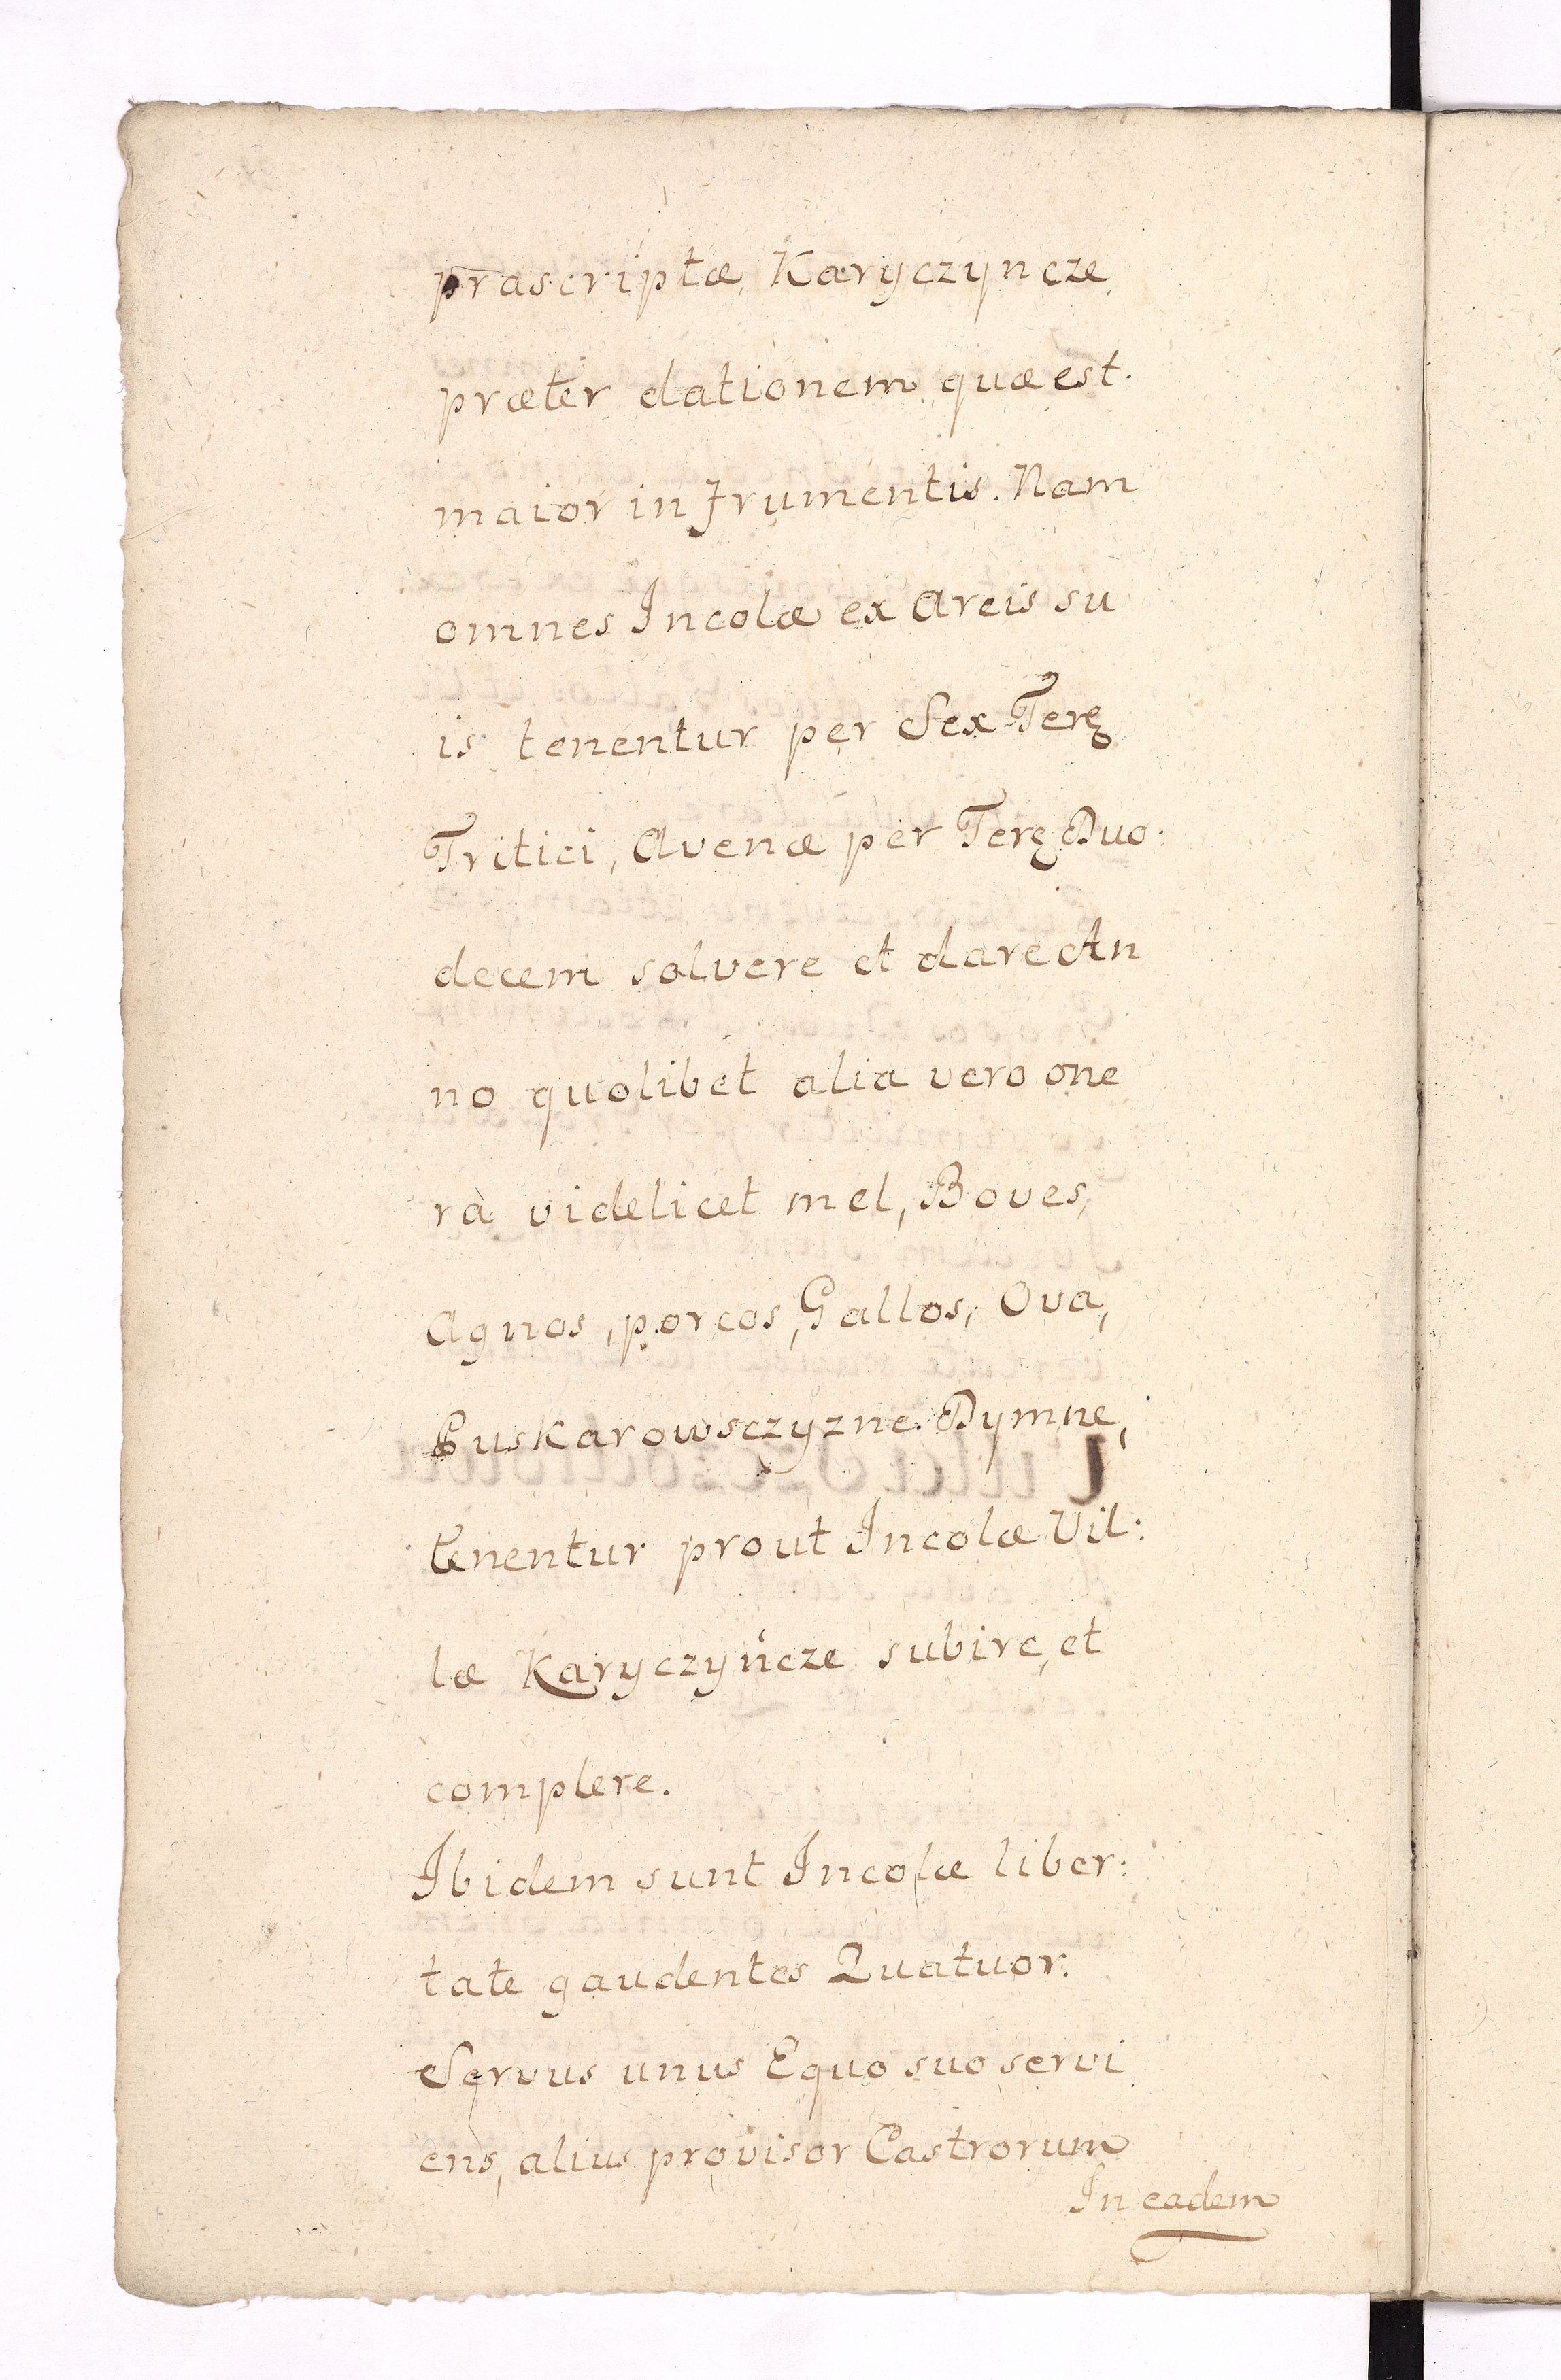 præscriptæ Karyczyncze
præter dationem quæ est
maior in frumentis. Nam
omnes Incolæ ex Areis su
is tenentur per Sex Terę
Tritici, Avenæ per Terę Duo:
decem solvere et dare An
no quolibet alia vero one
ra videlicet mel, Boves,
Agnos, porcos, Gallos, Ova,
Puskarowsczyzne. Dymne,
tenentur prout Incolæ Vil:
læ Karyczyncze subire, et
complere.
Ibidem sunt Incolæ liber:
tate gaudentes Quatuor.
Servus unus Equo suo servi
ens, alius provisor Castrorum
In eadem